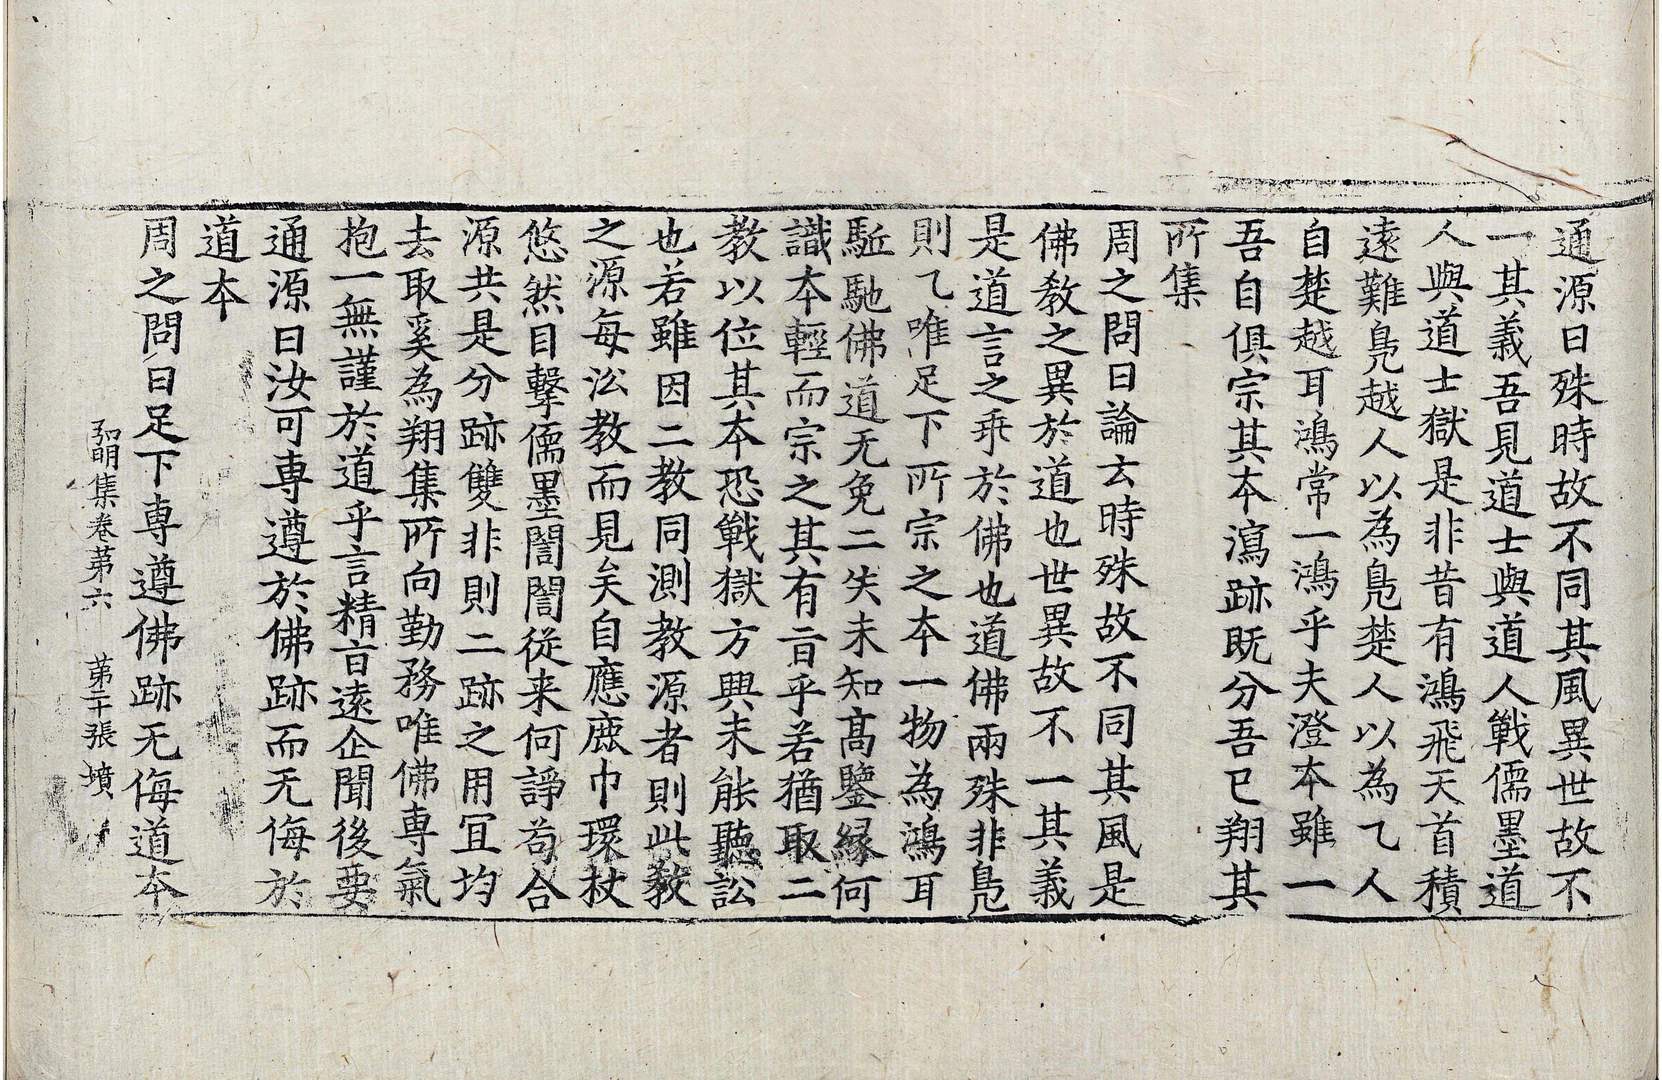 通源曰殊時故不同其風異世故不
一其義吾見道士與道人戰儒墨道
人與道士獄是非昔有鴻飛天首積
遠難鳧越人以為鳧楚人以為乙人
自楚越耳鴻常一鴻乎夫澄本雖一
吾自俱宗其本鴻跡既分吾已翔其
所集
周之問曰論云時殊故不同其風是
佛教之異於道也世異故不一其義
是道言之乖於佛也道佛兩殊非鳧
則乙唯足下所宗之本一物為鴻耳
駈馳佛道无免二失未知高鑒縁何
識本輕而宗之其有旨乎若猶取二
教以位其本恐戰獄方興未能聽訟
也若雖因二教同測教源者則此教
之源每沿教而見矣自應鹿巾環杖
悠然目擊儒墨誾誾従来何諍苟合
源共是分跡雙非則二跡之用冝均
去取奚為翔集所向勤務唯佛専氣
抱一無謹於道乎言精旨遠企聞後要
通源曰汝可専遵於佛跡而无侮於
道本
周之問曰足下専遵佛跡无侮道本
弘明集卷第六　第二十張　墳